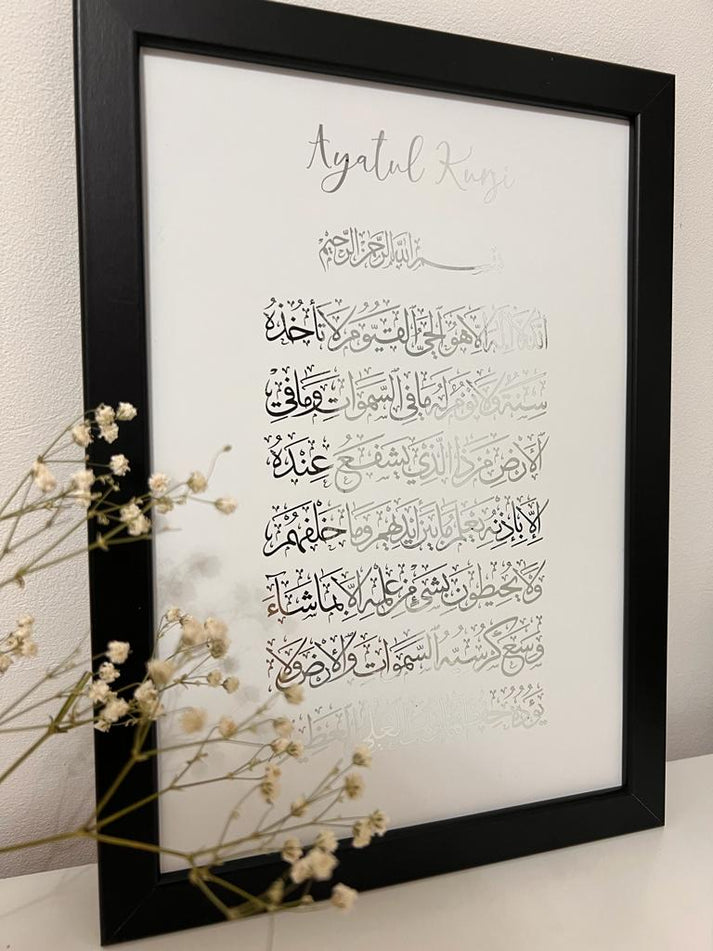 Ayatul Kursi
بِسْمِ اللَّهِ الرَّحْمَٰنِ الرَّحِيمِ
اللَّهُ لَا إِلَٰهَ إِلَّا هُوَ الْحَيُّ الْقَيُّومُ لَا تَأْخُذُهُ
سِنَةٌ وَلَا نَوْمٌ لَهُ مَا فِي السَّمَوَاتِ وَمَا فِي
الْأَرْضِ مَنْ ذَا الَّذِي يَشْفَعُ عِنْدَهُ
إِلَّا بِإِذْنِهِ يَعْلَمُ مَا بَيْنَ أَيْدِيهِمْ وَمَا خَلْفَهُمْ
وَلَا يُحِيطُونَ بِشَيْءٍ مِنْ عِلْمِهِ إِلَّا بِمَا شَاءَ
وَسِعَ كُرْسِيُّهُ السَّمَوَاتِ وَالْأَرْضَ وَلَا
يَئُودُهُ حِفْظُهُمَا وَهُوَ الْعَلِيُّ الْعَظِيمُ